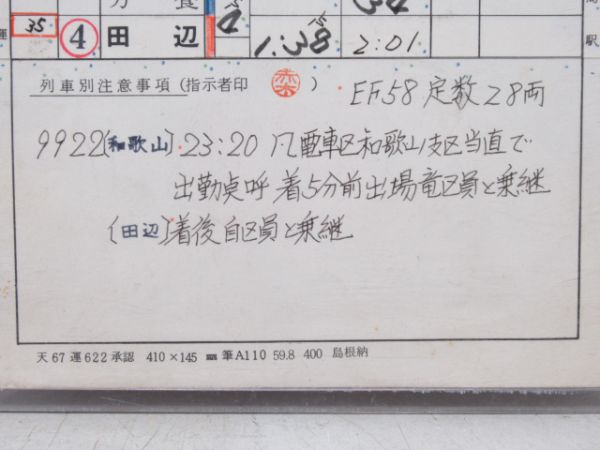 35 ④ 田辺 1:38 15 2:01 駅
列車別注意事項 (指示者印 ) EF58 定数28両
9922〔和歌山〕23:20 電車区和歌山支区当直で
出勤点呼 着5分前出場竜区員と乗継
〔田辺〕着後自区員と乗継
天67運622承認 410×145 ㎜ 筆A110 59.8 400 島根納